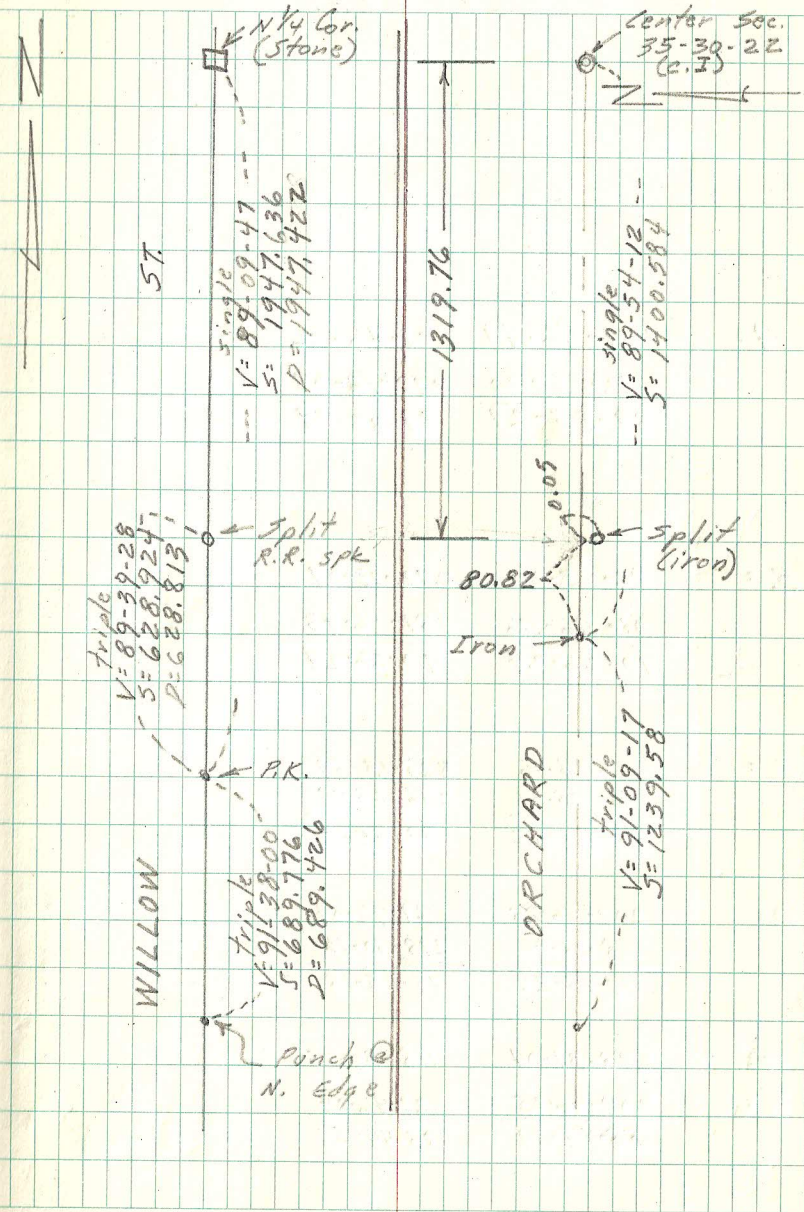 N
N 1/4 Cor.
(Stone)
ST.
single
V= 89-09-47
S= 1947.636
D= 1947.422
triple
V= 89-39-28
S= 628.924
D= 628.813
Split
R.R. spk
P.K.
WILLOW
triple
V= 91-38-00
S= 689.776
D= 689.426
Punch @
N. Edge
Center Sec.
35-30-22
(C.I)
N
1319.76
single
V= 89-54-12
S= 1400.584
0.05
Split
(iron)
80.82
Iron
ORCHARD
triple
V= 91-09-17
S= 1239.58